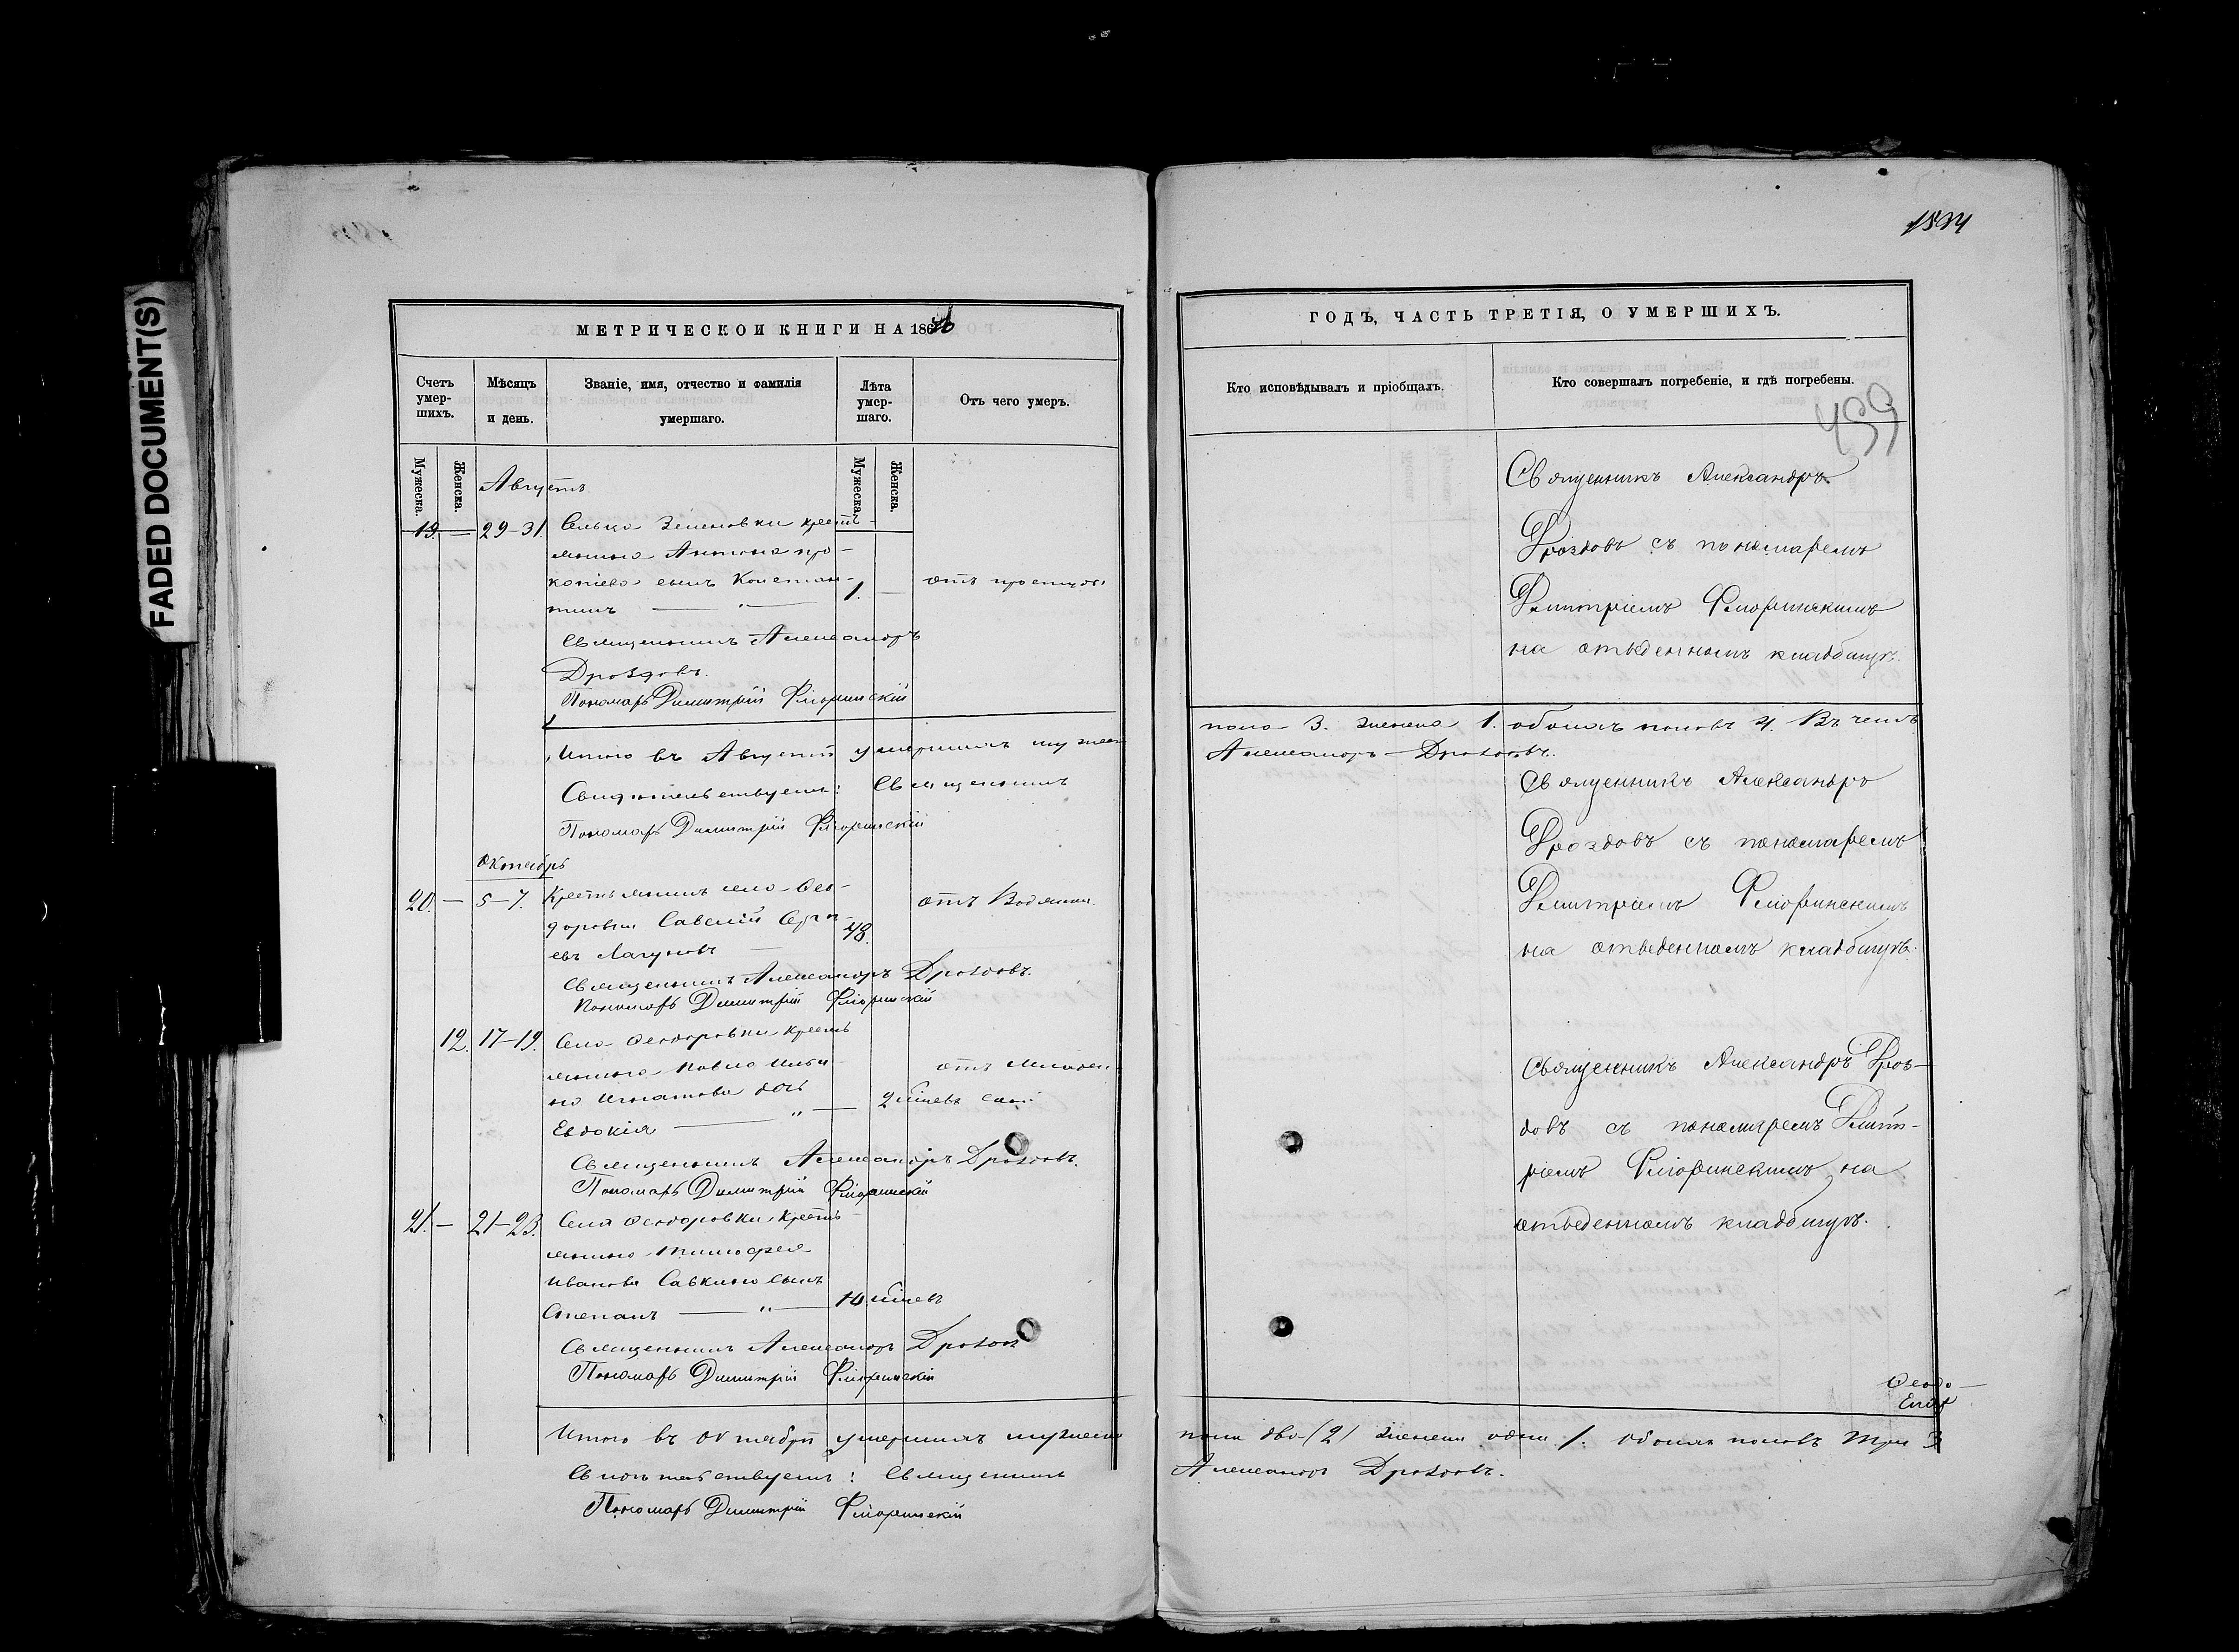 FADED DOCUMENT(S)
МЕТРИЧЕСКОЙ КНИГИ НА 186
Счетъ умер-шихъ.
Мѣсяцъ и день.
Званіе, имя, отчество и фамилія умершаго.
Лѣта умер-шаго.
Отъ чего умеръ.
Мужеска.
Женска.
Мужеска.
Женска.
Августъ
19. — 29-31. Сельца Зеленовки крестъ-
янина Антона Про-
копіева сынъ Констан- 1. —
тинъ — " —
Священникъ Александръ
Дроздовъ.
Пономарь Димитрій Фліоринскій
Итого въ Августѣ умершихъ мужеска
Свидѣтельствуемъ: Священникъ
Пономарь Димитрій Фліоринскій
Октябрь
20. — 5-7. Крестьянинъ села Ѳео- отъ Водянки.
доровки Савелій Серге- 48.
евъ Лагуновъ —
Священникъ Александръ Дроздовъ.
Пономарь Димитрій Фліоринскій
12. 17-19. Села Ѳеодоровки крестъ
янина Павла Ильи- отъ
на Игнатова дочь
Евдокія — " — 2
Священникъ Александръ Дроздовъ.
Пономарь Димитрій Фліоринскій
21. — 21-23. Села Ѳеодоровки крестъ-
янина Тимофея
Иванова Савкина сынъ
Степанъ — " — 10
Священникъ Александръ Дроздовъ
Пономарь Димитрій Фліоринскій
Итого въ Октябрѣ умершихъ мужеска
Свидѣтельствуемъ: Священникъ
Пономарь Димитрій Фліоринскій
ГОДЪ, ЧАСТЬ ТРЕТІЯ, О УМЕРШИХЪ.
Кто исповѣдывалъ и пріобщалъ.
Кто совершалъ погребеніе, и гдѣ погребены.
Священникъ Александръ
Дроздовъ съ понамаремъ
Дмитріемъ Фліоринскимъ
на отведенномъ кладбищѣ.
пола 3. женска 1. обоихъ половъ 4. Въ чемъ
Александръ Дроздовъ.
Священникъ Александръ
Дроздовъ съ понамаремъ
Дмитріемъ Фліоринскимъ
на отведенномъ кладбищѣ.
Священникъ Александръ Дроз-
довъ съ понамаремъ Дмит-
ріемъ Фліоринскимъ на
отведенномъ кладбищѣ.
пола два (2) женска одна 1. обоихъ половъ три 3
Александръ Дроздовъ.